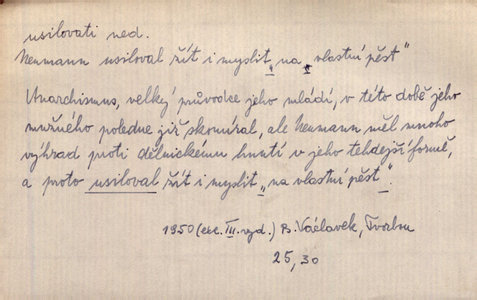 usilovati ned.
Neumann usiloval žít i myslit „na vlastní pěst“
Anarchismus, velký průvodce jeho mládí, v této době jeho
mužného poledne již skomíral, ale Neumann měl mnoho
výhrad proti dělnickému hnutí v jeho tehdejší formě,
a proto usiloval žít i myslit „na vlastní pěst“.
1950 (cit. III. vyd.) B. Václavek, Tvorbou
25, 30